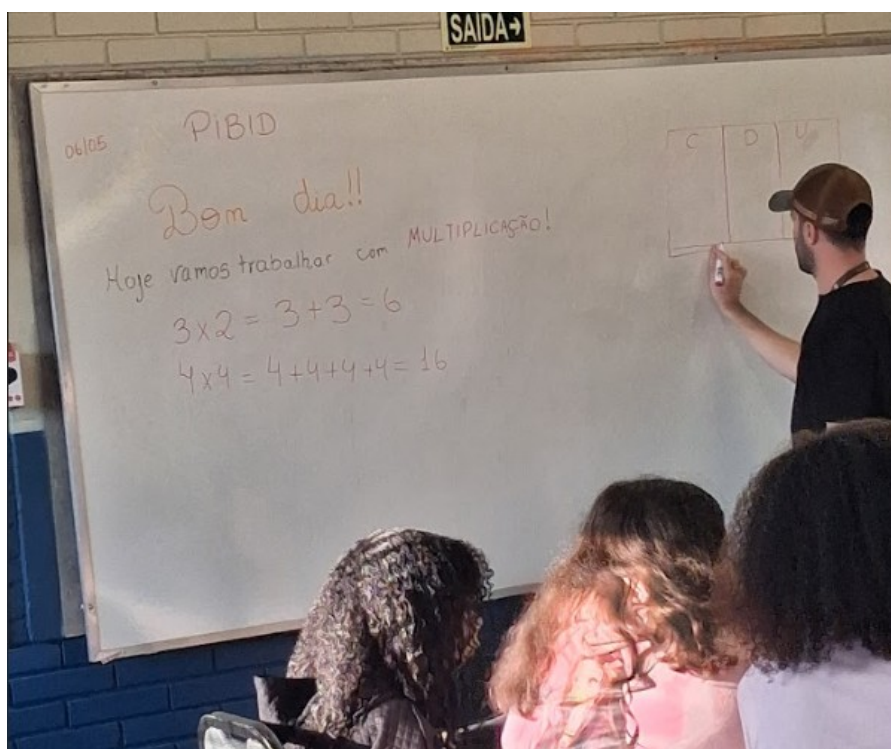 SAÍDA→
06/05 PIBID
C D U
Bom dia!!
Hoje vamos trabalhar com MULTIPLICAÇÃO!
3x2 = 3+3 = 6
4x4 = 4+4+4+4 = 16